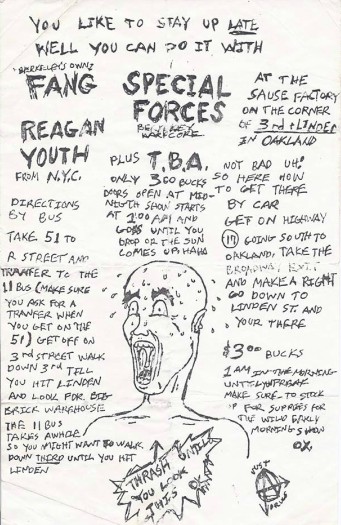 YOU LIKE TO STAY UP LATE
WELL YOU CAN DO IT WITH
BERKELEY'S OWN
FANG
SPECIAL
FORCES
BERKELEY
HARDCORE
REAGAN
YOUTH
FROM N.Y.C.
PLUS T.B.A.
ONLY 3.00 BUCKS
DOORS OPEN AT MID-
NIGTH SHOW STARTS
AT 1:00 AM AND
GOSS UNTIL YOU
DROP OR THE SUN
COMES UP HAHA
AT THE
SAUSE FACTORY
ON THE CORNER
OF 3rd + LINDEN
IN OAKLAND
NOT BAD UH!
SO HERE HOW
TO GET THERE
BY CAR
GET ON HIGHWAY
17 GOING SOUTH TO
OAKLAND, TAKE THE
BROADWAY EXIT
AND MAKE A RIGHT
GO DOWN TO
LINDEN ST AND
YOUR THERE
$3.00 BUCKS
1 AM IN THE MORNING
UNTILL YOU FREAK
MAKE SURE TO STOCK
UP FOR SUPPIES FOR
THE WILD EARLY
MORNING SHOW
OX.
DIRECTIONS
BY BUS
TAKE 51 TO
R STREET AND
TRANFER TO THE
11 BUS (MAKE SURE
YOU ASK FOR A
TRANFER WHEN
YOU GET ON THE
51) GET OFF ON
3rd STREET WALK
DOWN 3rd TELL
YOU HIT LINDEN
AND LOOK FOR BIG
BRICK WAREHOUSE
THE 11 BUS
TAKES AWHILE
SO YOU MIGHT WANT TO WALK
DOWN THIRD UNTIL YOU HIT
LINDEN
THRASH UNTILL
YOU LOOK
THIS OX